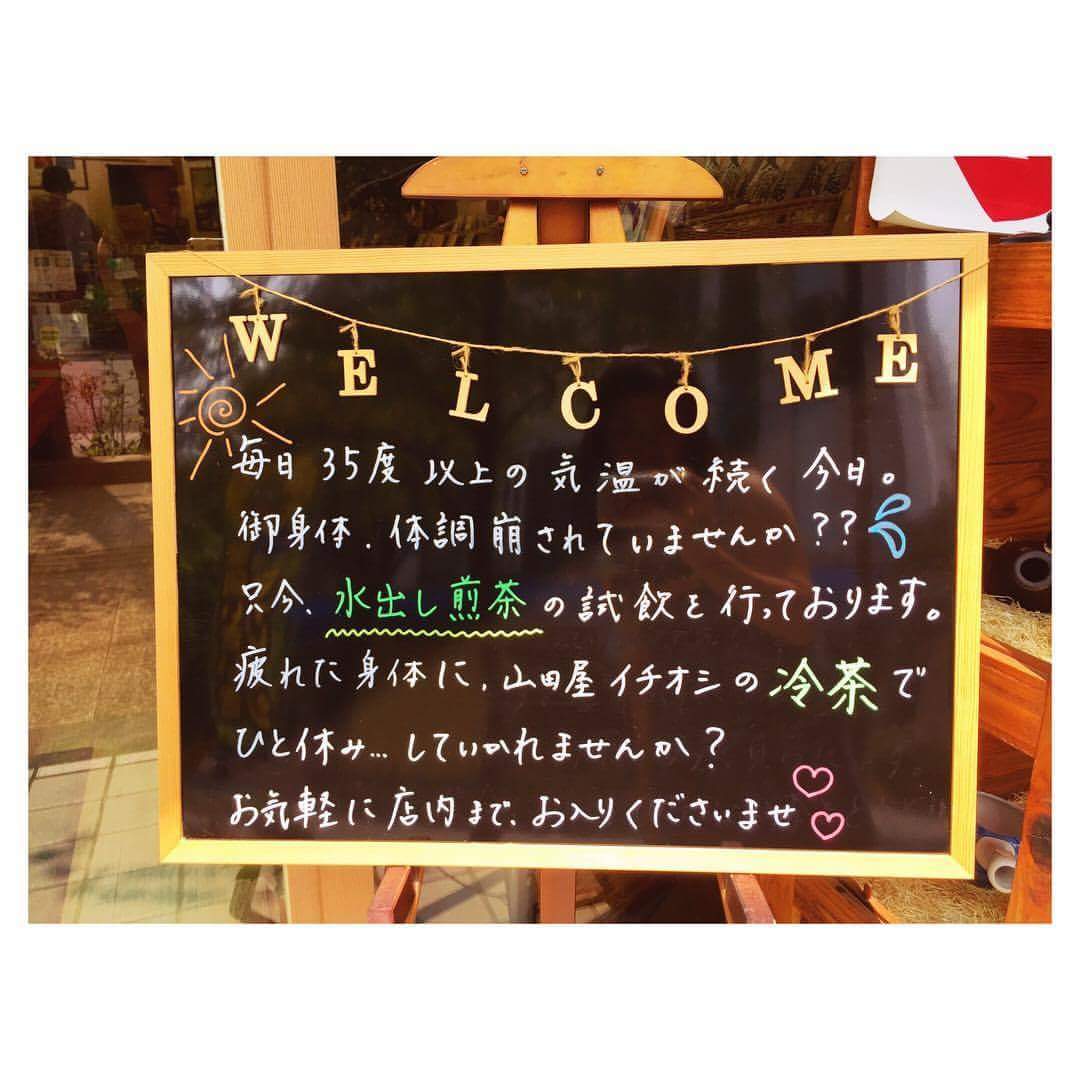 WELCOME
毎日35度以上の気温が続く今日。
御身体、体調崩されていませんか??
只今、水出し煎茶の試飲を行っております。
疲れた身体に、山田屋イチオシの冷茶で
ひと休み…していかれませんか?
お気軽に店内まで、お入りくださいませ